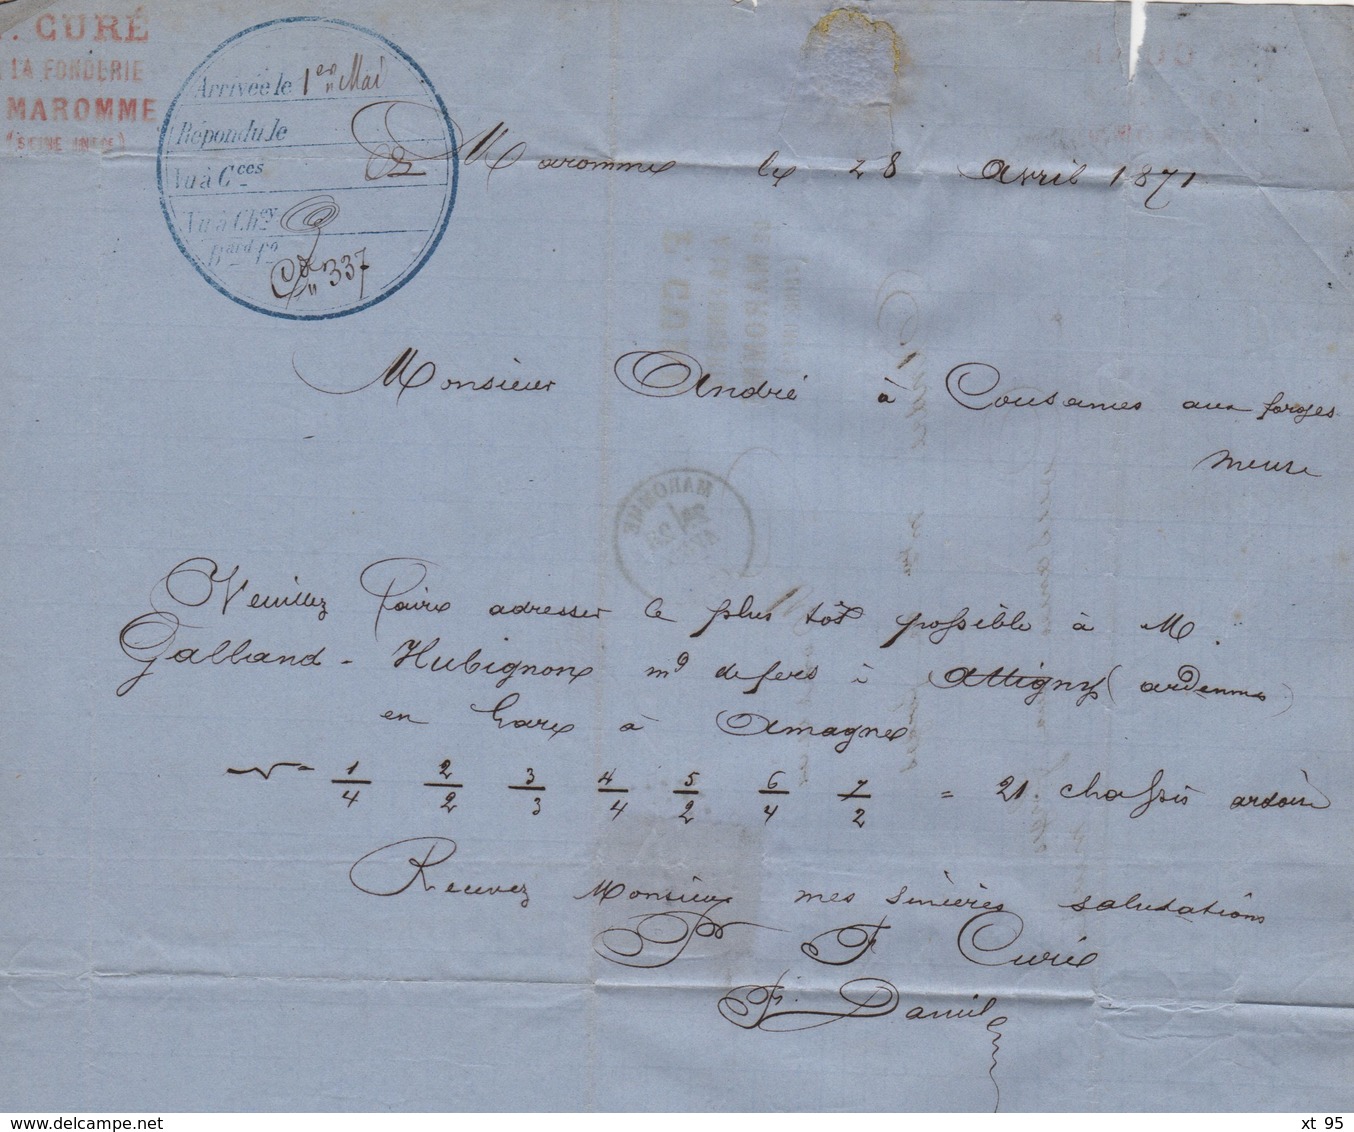 F. CURÉ
LA FONDERIE
MAROMME
(SEINE INFRE)
Arrivée le 1er Mai
Répondu le
Vu à Cces
Vu à Chey
Bard Po
337
Maromme le 28 Avril 1871
Monsieur André à Cousances aux forges
meuse
MAROMME
Veuillez faire adresser le plus tôt possible à M.
Galland - Hubignon md de fers à Attigny (ardennes)
en Gare à Amagne
1/4 2/2 3/3 4/4 5/2 6/4 7/2 = 21 chassis ardoise
Recevez Monsieur mes sincères salutations
Pr F Curé
F. Daniel
xt 95